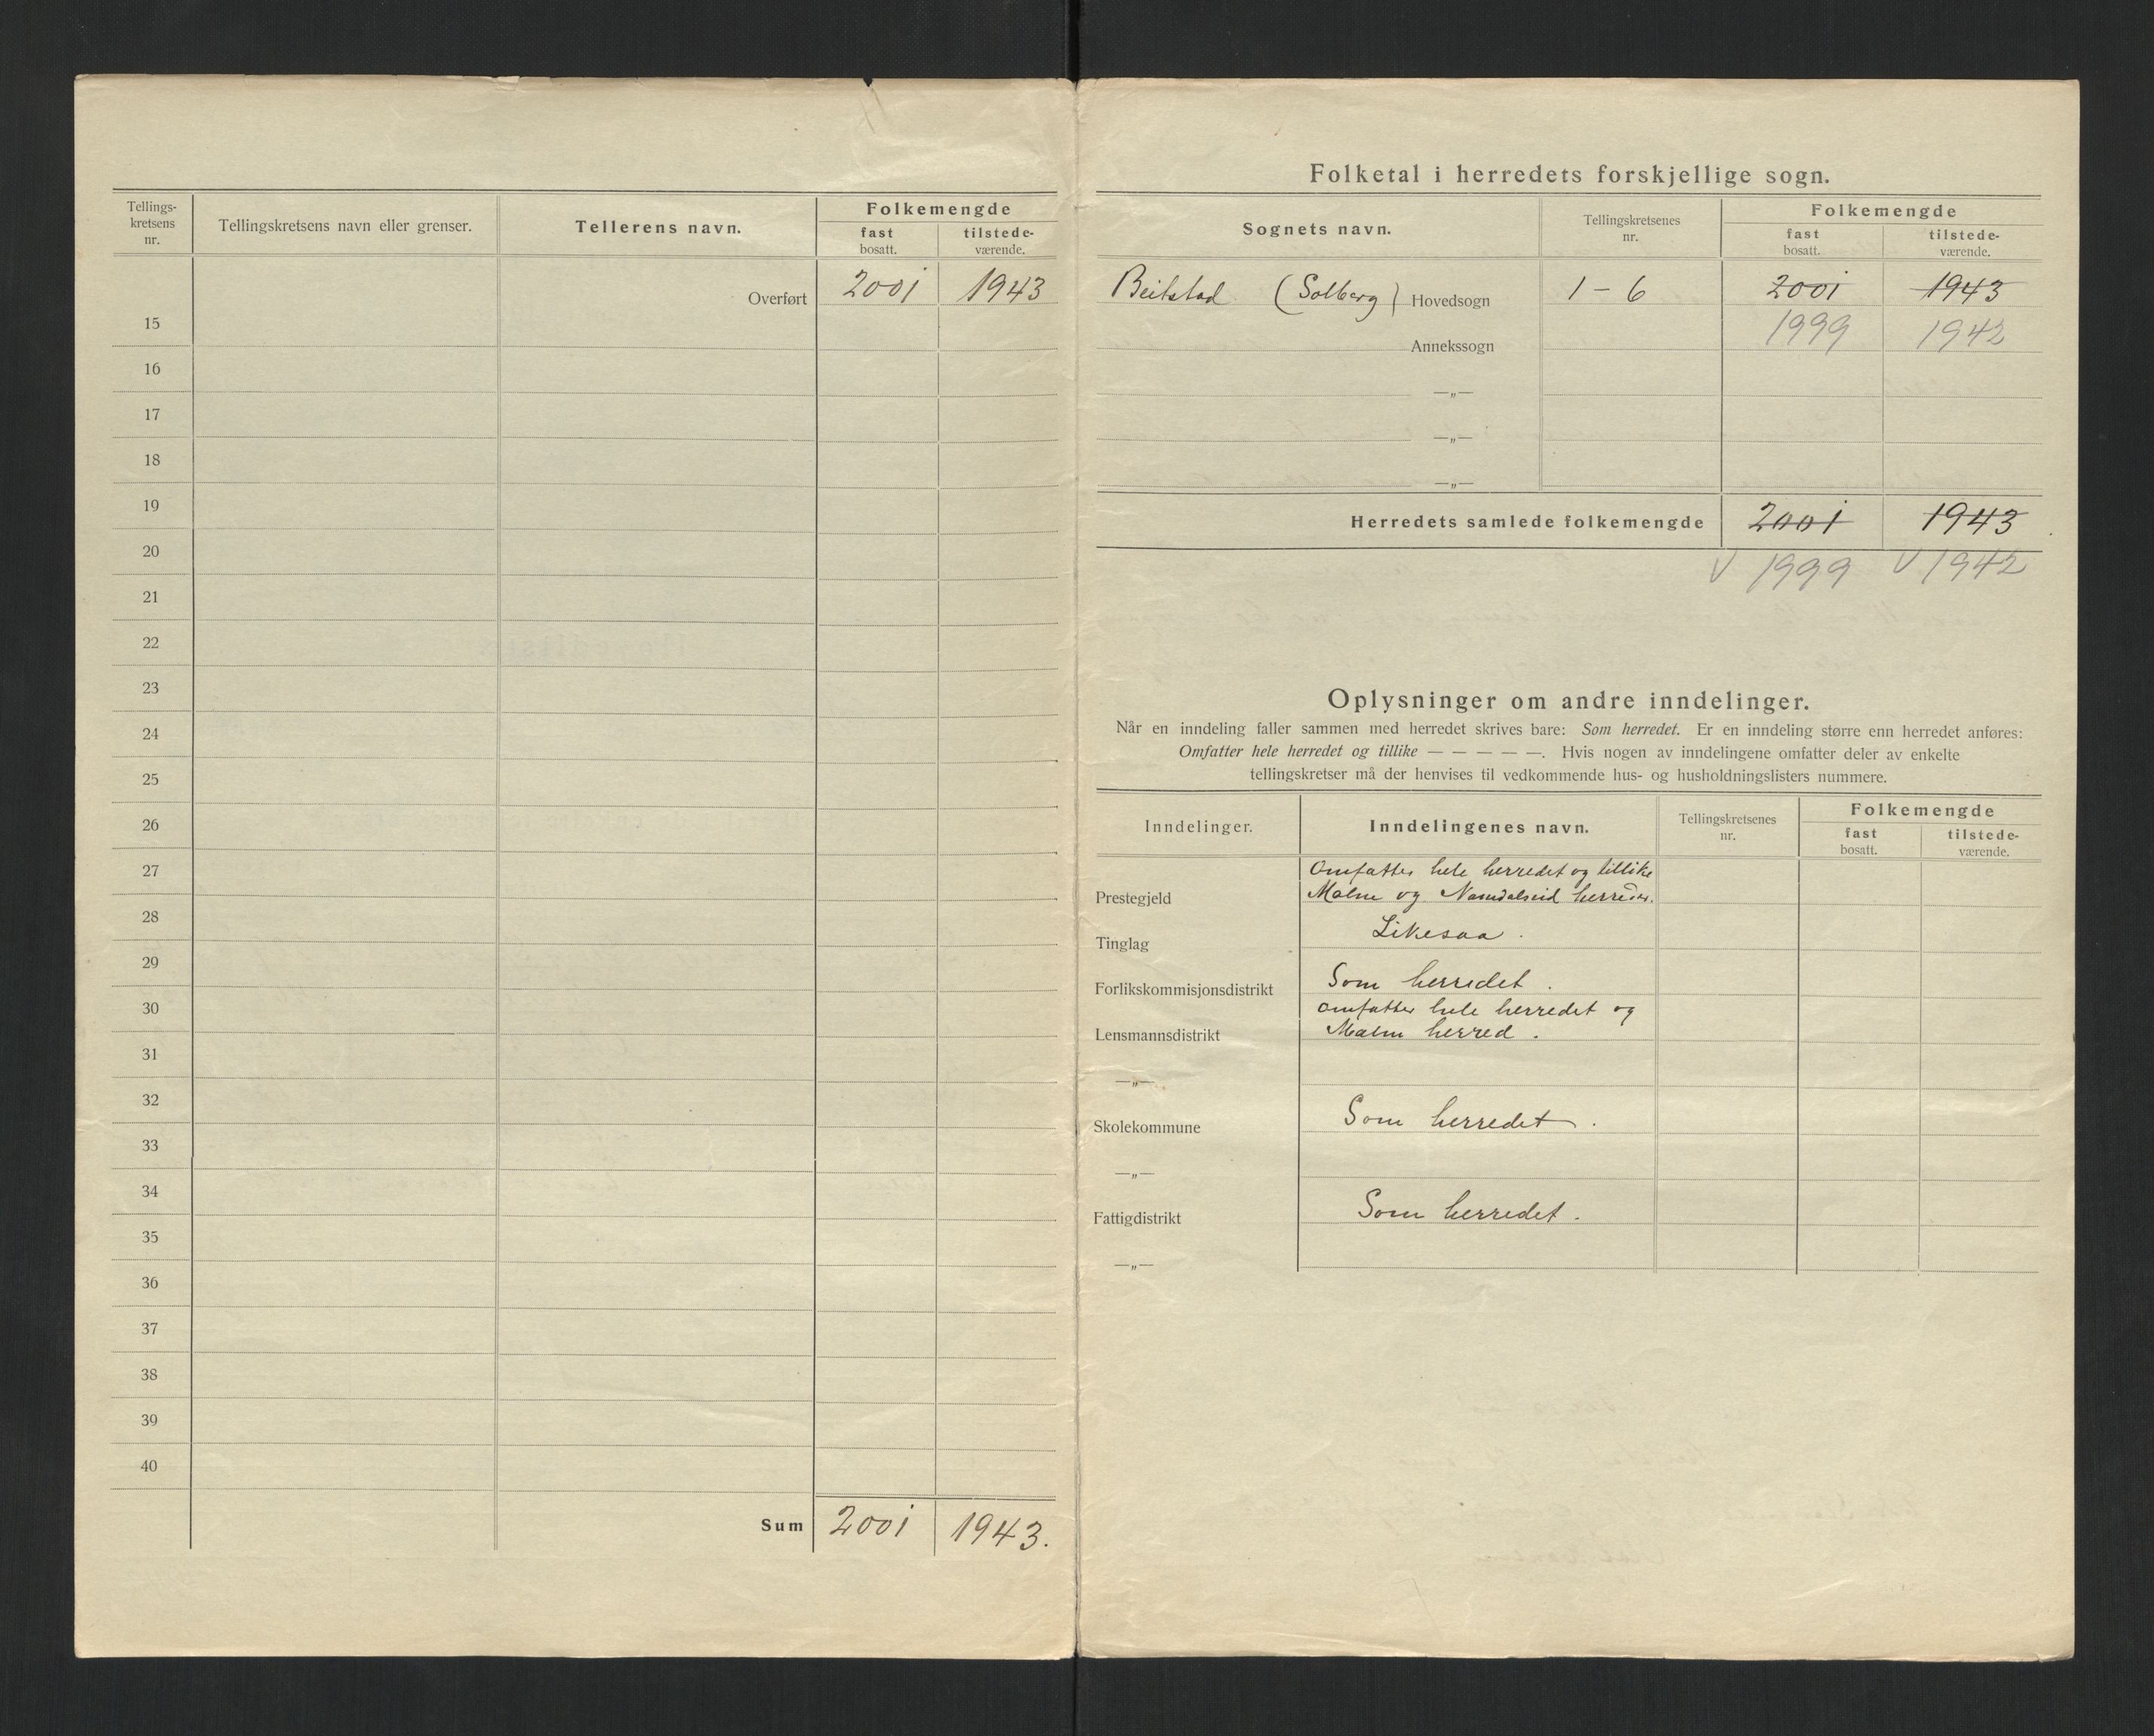 Tellings-
kretsens
nr.
Tellingskretsens navn eller grenser.
Tellerens navn.
Folkemengde
fast
bosatt.
tilstede-
værende.
Overført 2001 1943
15
16
17
18
19
20
21
22
23
24
25
26
27
28
29
30
31
32
33
34
35
36
37
38
39
40
Sum 2001 1943.
Folketal i herredets forskjellige sogn.
Sognets navn.
Tellingskretsenes
nr.
Folkemengde
fast
bosatt.
tilstede-
værende.
Beitstad (Solberg) Hovedsogn 1-6 2001 1943
Annekssogn 1999 1942
—„—
—„—
—„—
Herredets samlede folkemengde 2001 1943
V 1999 V 1942
Oplysninger om andre inndelinger.
Når en inndeling faller sammen med herredet skrives bare: Som herredet. Er en inndeling større enn herredet anføres:
Omfatter hele herredet og tillike — — — — —. Hvis nogen av inndelingene omfatter deler av enkelte
tellingskretser må der henvises til vedkommende hus- og husholdningslisters nummere.
Inndelinger.
Inndelingenes navn.
Tellingskretsenes
nr.
Folkemengde
fast
bosatt.
tilstede-
værende.
Omfatter hele herredet og tillike
Prestegjeld Malm og Namdalseid herreder.
Tinglag Likesaa.
Forlikskommisjonsdistrikt Som herredet.
omfatter hele herredet og
Lensmannsdistrikt Malm herred.
—„—
Skolekommune Som herredet.
—„—
Fattigdistrikt Som herredet.
—„—